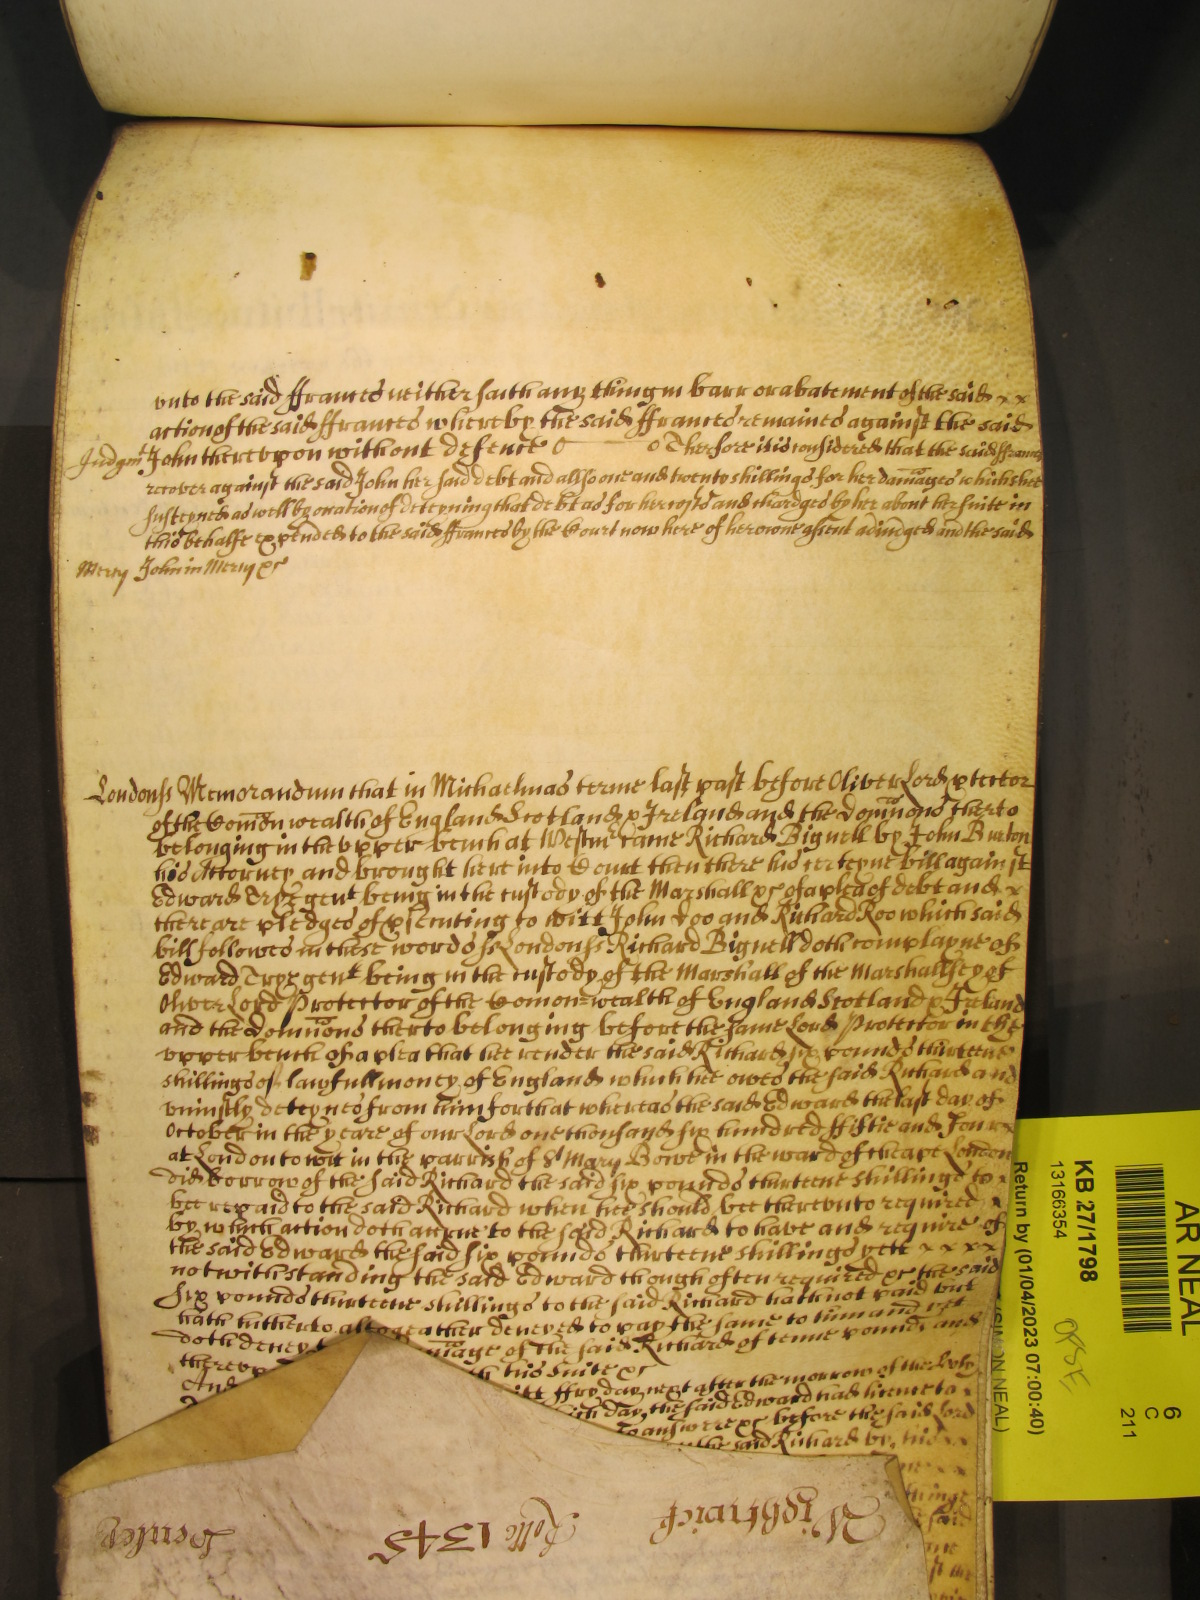 unto the said ffrances neither saith any thing in barr or abatement of the said x x
action of the said ffrances whereby the said ffrances remaines against the said
Judgmt John thereupon without defence Therfore it is considered that the said ffrances
recover against the said John her said debt and allso one and twenty shillings for her damages which shee
susteyned as well by occation of deteyning that debt as for her costs and chardges by her about her suite in
this behalfe expended to the said ffrances by the Court now here of her owne assent adiudged and the said
Mercy John in Mercy &c
London ss Memorandum that in Michaelmas terme last past before Oliver Lord ptector
of the Comon wealth of England Scotland & Ireland and the Dominions therto
belonging in the upper bench at Westmr came Richard Bignell by John Burton
his Attorney and brought here into Court then there his certeyne bill against
Edward gent being in the custody of the Marshall &c of a plea of debt and x
there are pledges of psecuting to witt John Doo and Richard Roo which said
bill followes in these words ss London ss Richard Bignell doth complayne of
Edward gent being in the custody of the Marshall of the Marshallsey of
Oliver Lord Protector of the Comon=wealth of England Scotland & Ireland
and the Dominions therto belonging before the same Lord Protector in the
upper bench of a plea that hee render the said Richard six pounds thirteene
shillings of lawfull money of England which hee owes the said Richard and
uniustly deteynes from him for that whereas the said Edward the last day of
October in the yeare of our Lord one thousand six hundred ffiftie and Foure
at London to wit in the parrish of St Mary Bowe in the ward of Cheape London
did borrow of the said Richard the said six pounds thirteene shillings to x
bee repaid to the said Richard when hee should bee thereunto required x
by which action doth accrue to the said Richard to have and require of
the said Edward the said six pounds thirteene shillings yett x x x x
notwithstanding the said Edward though often required &c the said
six pounds thirteene shillings to the said Richard hath not paid but
hath hitherto altogeather denyed to pay the same to him and yet
doth deney of the said Richard of tenne pounds and
his suite &c
And ffryday next after the morrow of the
day, the said Edward had licence to x
to answere &c before the said Lord
the said Richard by his
Wightwick Rolle 1345
AR NEAL
6
C
211
KB 27/1798
13166354
Return by (01/04/2023 07:00:40)
(SIMON NEAL)